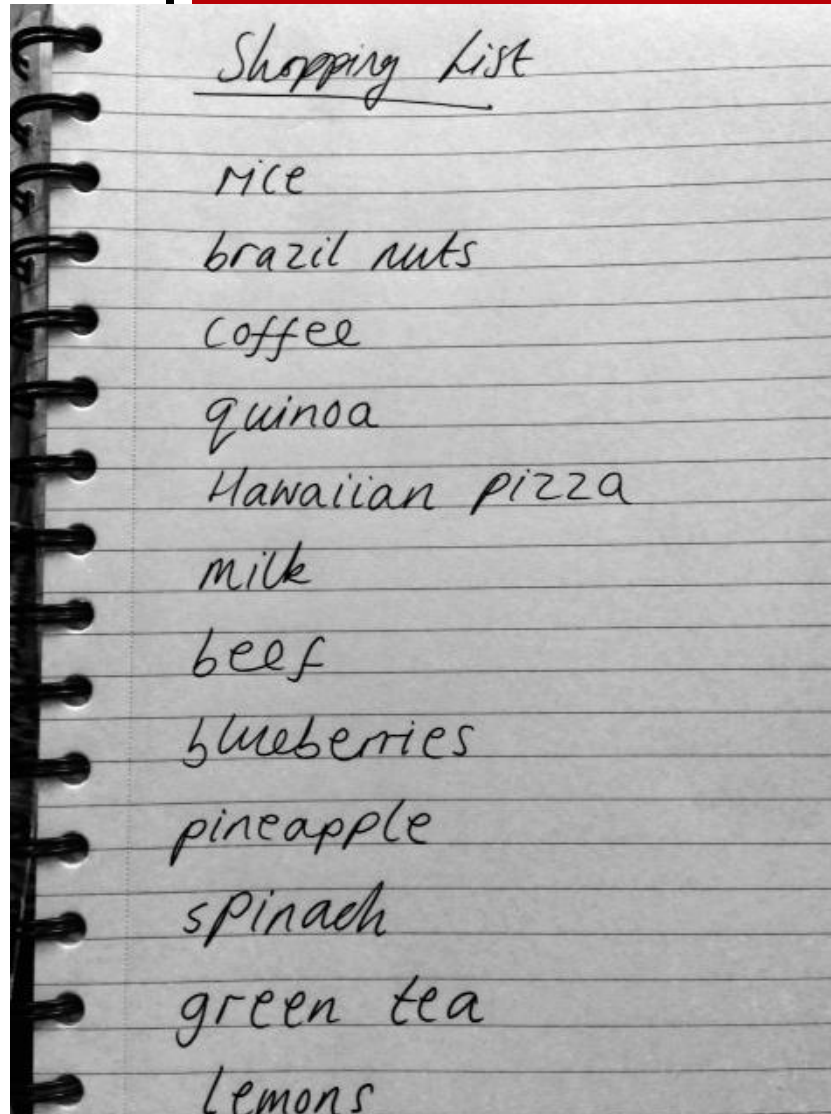 Shopping List
rice
brazil nuts
coffee
quinoa
Hawaiian pizza
milk
beef
blueberries
pineapple
spinach
green tea
lemons